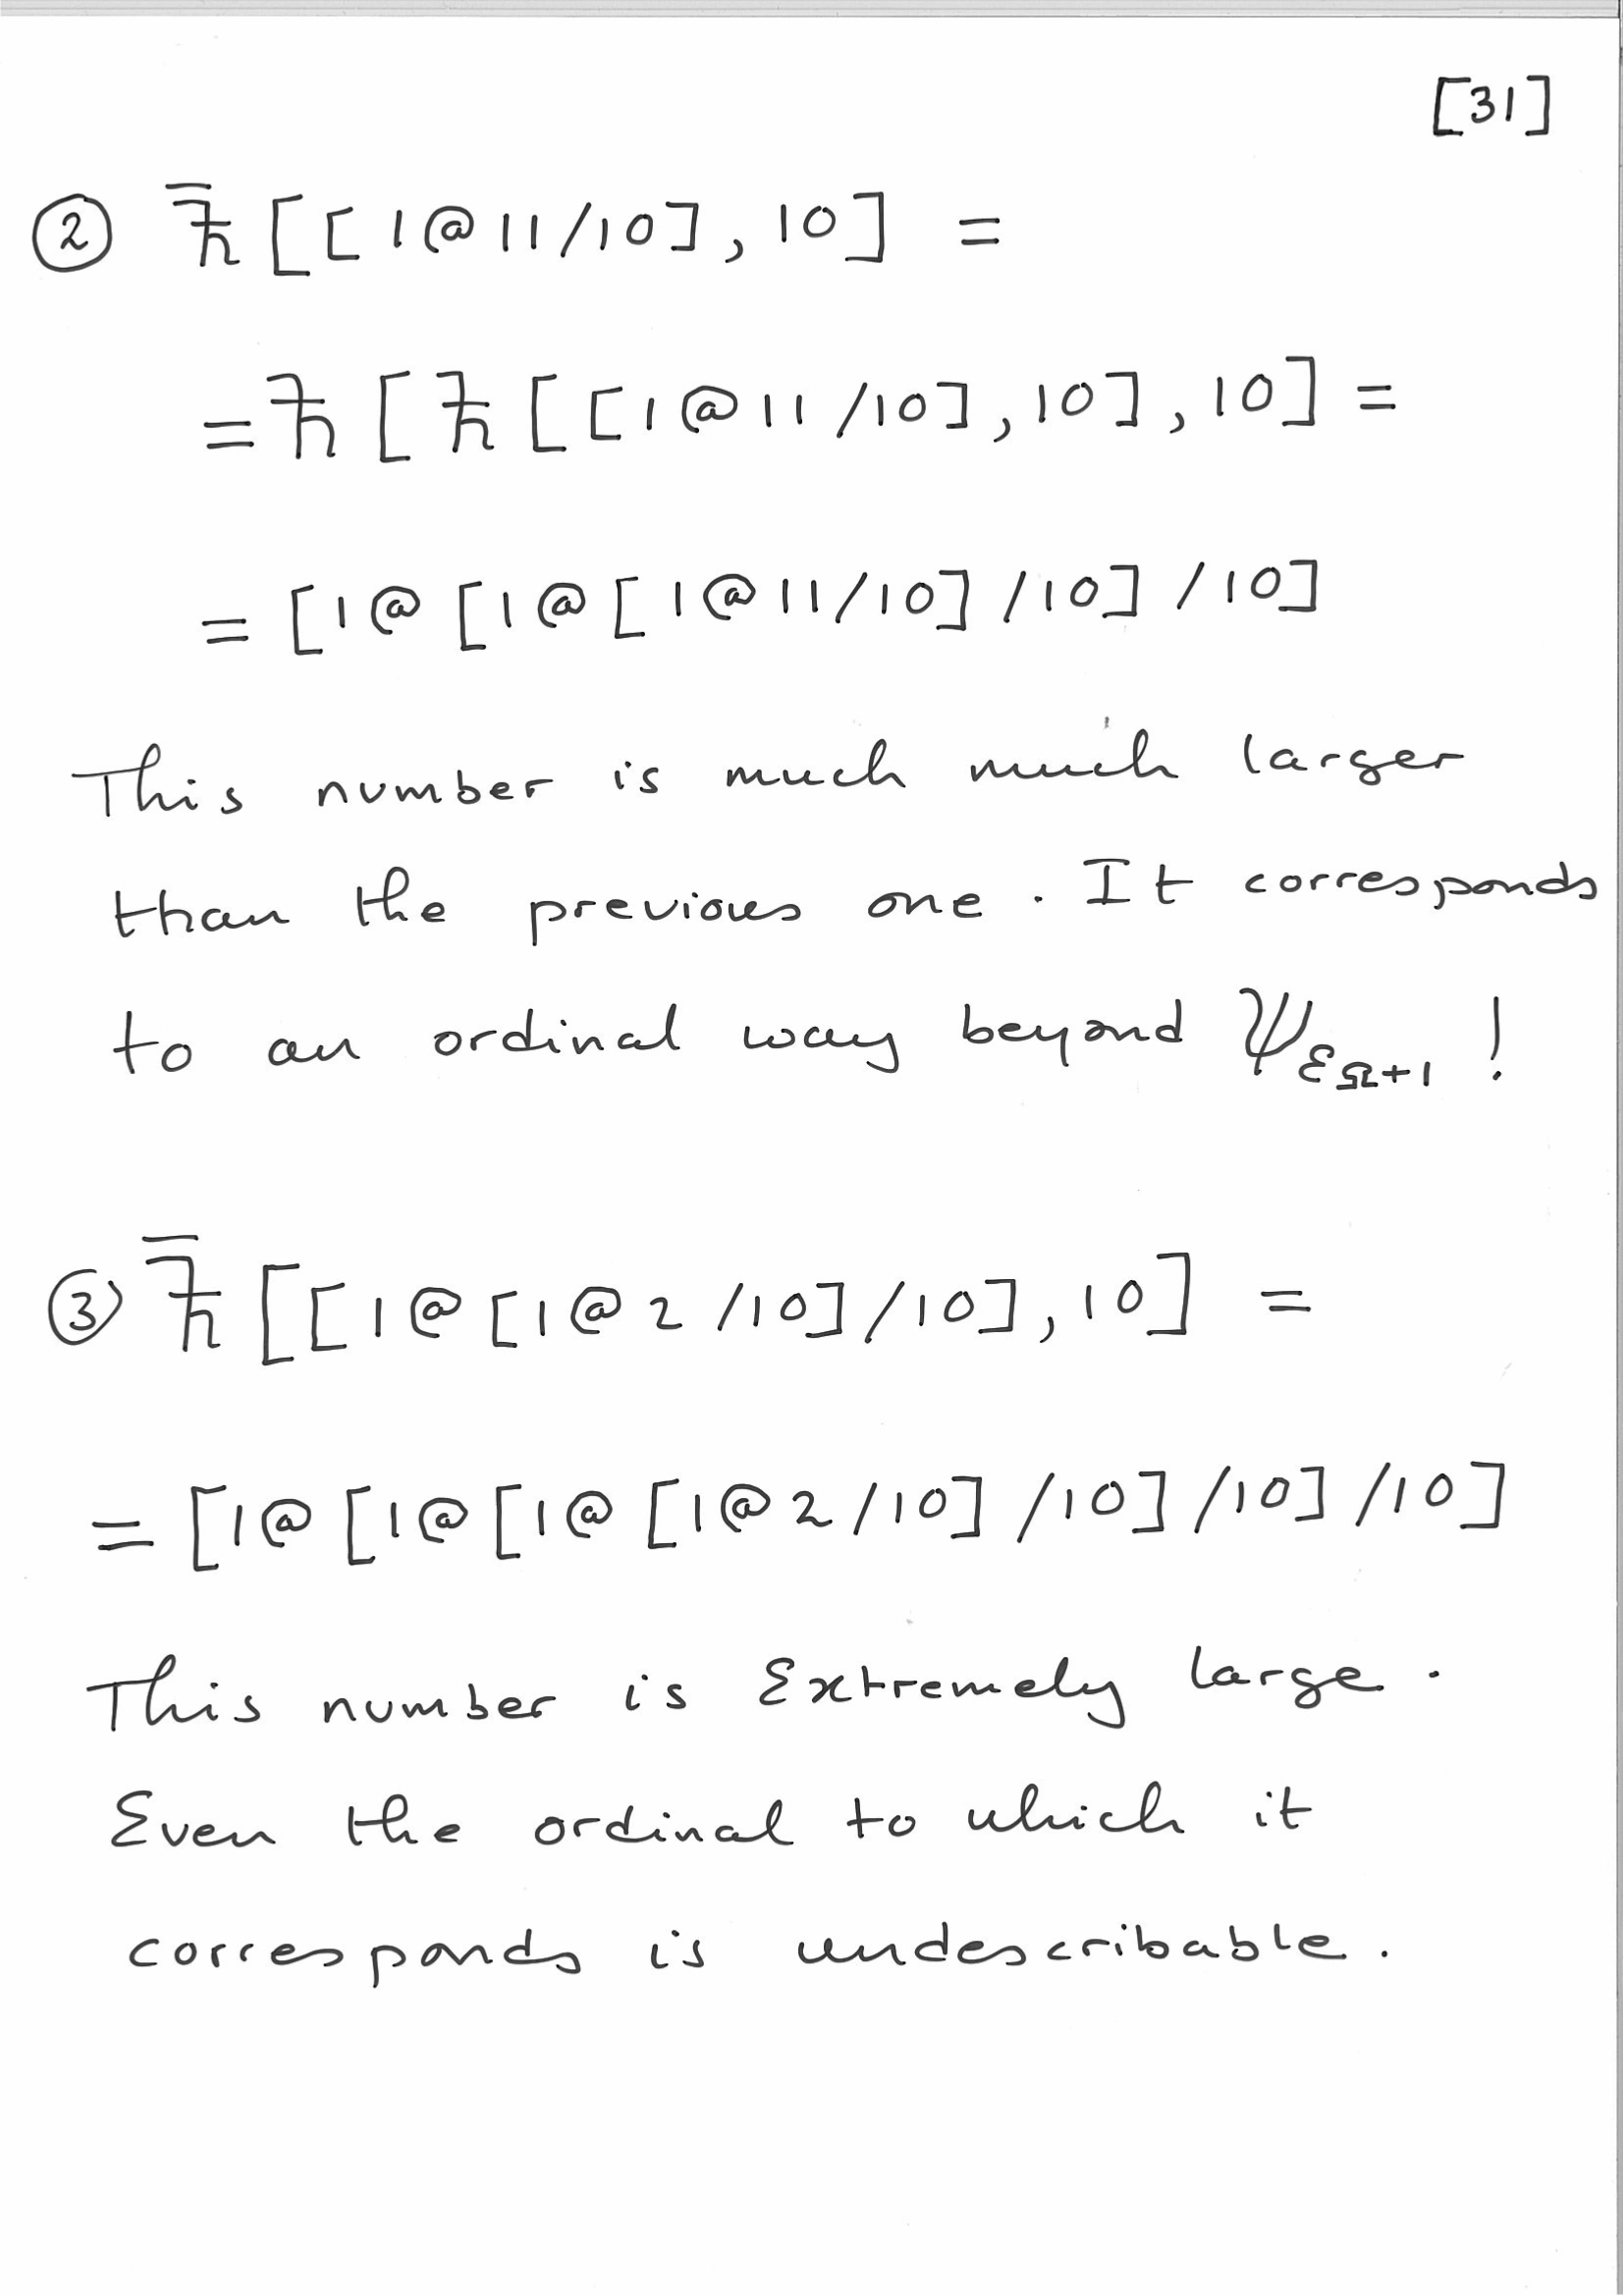 [31]
② ħ̿ [[1@11/10], 10] =
= ħ̄ [ħ̄ [[1@11/10], 10], 10] =
= [1@[1@[1@11/10]/10]/10]
This number is much much larger
than the previous one. It corresponds
to an ordinal way beyond ψ_{ε_{Ω+1}} !
③ ħ̿ [[1@[1@2/10]/10], 10] =
= [1@[1@[1@[1@2/10]/10]/10]/10]
This number is Extremely large.
Even the ordinal to which it
corresponds is undescribable.